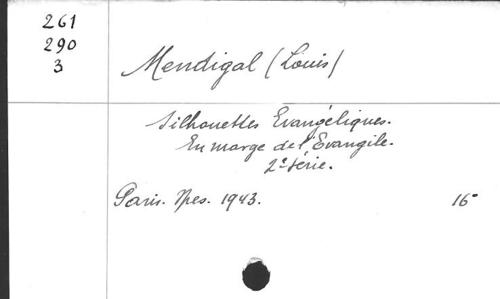 261
290
3
Mendigal (Louis)
Silhouettes Evangéliques.
En marge de l'Evangile.
2e série.
Paris. Spes. 1943. 16°